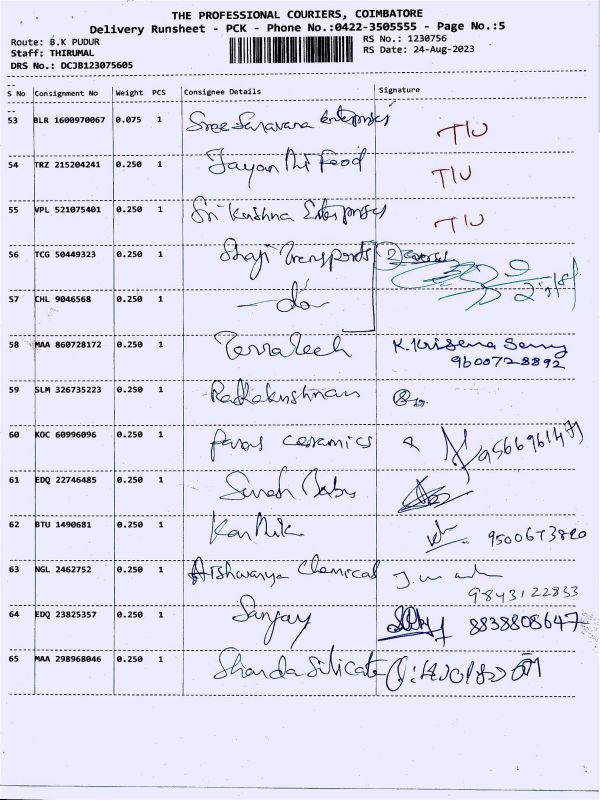 THE PROFESSIONAL COURIERS, COIMBATORE
Delivery Runsheet - PCK - Phone No.:0422-3505555 - Page No.:5
Route: B.K PUDUR
RS No.: 1230756
Staff: THIRUMAL
RS Date: 24-Aug-2023
DRS No.: DCJB123075605
S No Consignment No Weight PCS Consignee Details Signature
53 BLR 1600970067 0.075 1 Sree Saravana Enterprises TIU
54 TRZ 215204241 0.250 1 Jayanthi Food TIU
55 VPL 521075401 0.250 1 Sri Krishna Enterprises TIU
56 TCG 50449323 0.250 1 Shaji Transports 2 covers
57 CHL 9046568 0.250 1 -do-
58 MAA 860728172 0.250 1 Terra Tech K. Krisena Samy
9600728892
59 SLM 326735223 0.250 1 Radhakrishnan
60 KOC 60996096 0.250 1 ceramics
61 EDQ 22746485 0.250 1 Suresh Babu
62 BTU 1490681 0.250 1 Karthik
63 NGL 2462752 0.250 1 Aishwarya Chemical
9843122833
64 EDQ 23825357 0.250 1 Sanjay 8838808647
65 MAA 298968046 0.250 1 Sharda Silicate